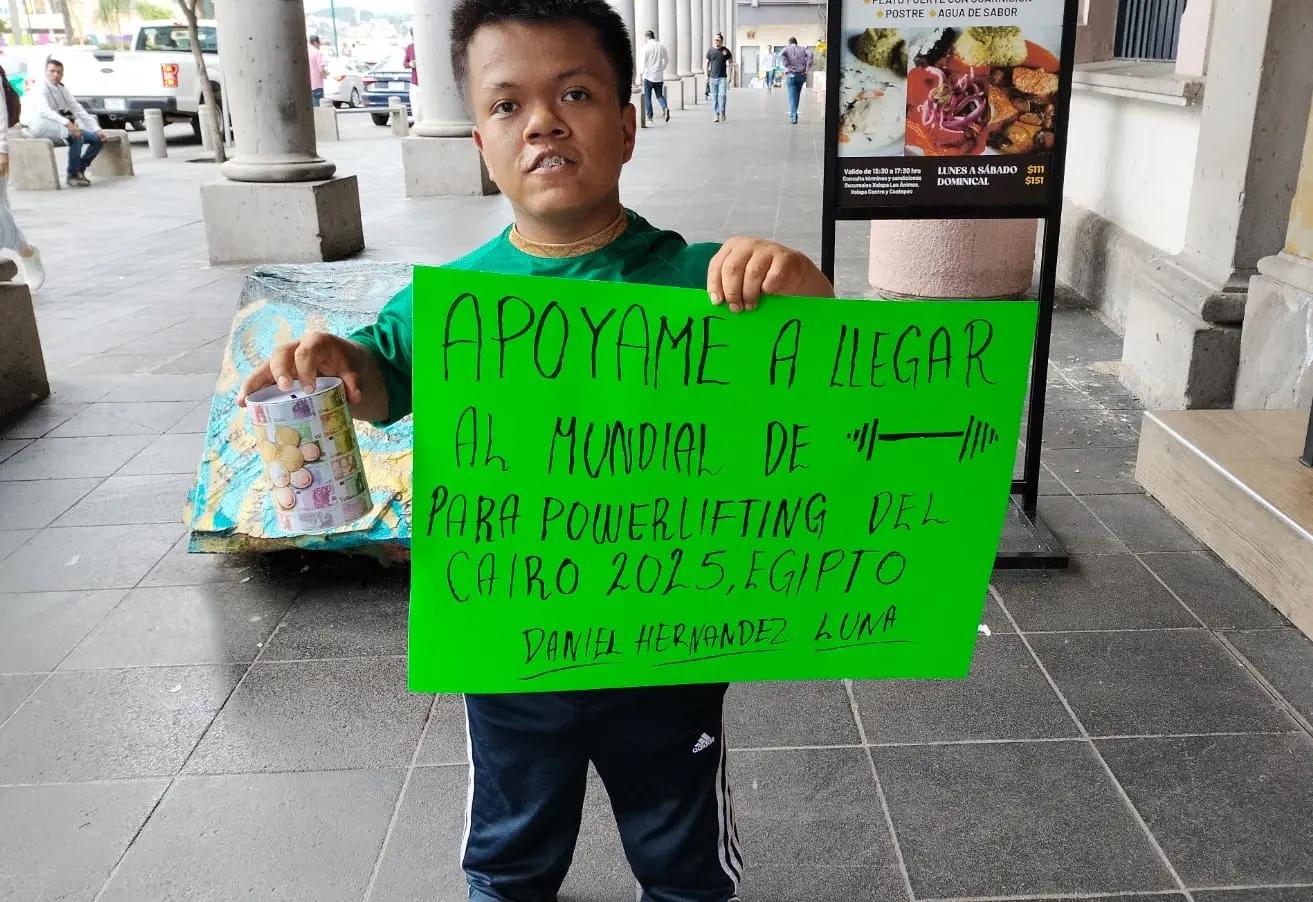 PLATO FUERTE CON GUARNICIÓN
POSTRE AGUA DE SABOR
Valido de 13:30 a 17:30 hrs
Consulta términos y condiciones
Sucursales Xalapa Las Ánimas,
Xalapa Centro y Coatepec
LUNES A SÁBADO $111
DOMINICAL $151
APOYAME A LLEGAR
AL MUNDIAL DE
PARA POWERLIFTING DEL
CAIRO 2025, EGIPTO
DANIEL HERNANDEZ LUNA
adidas